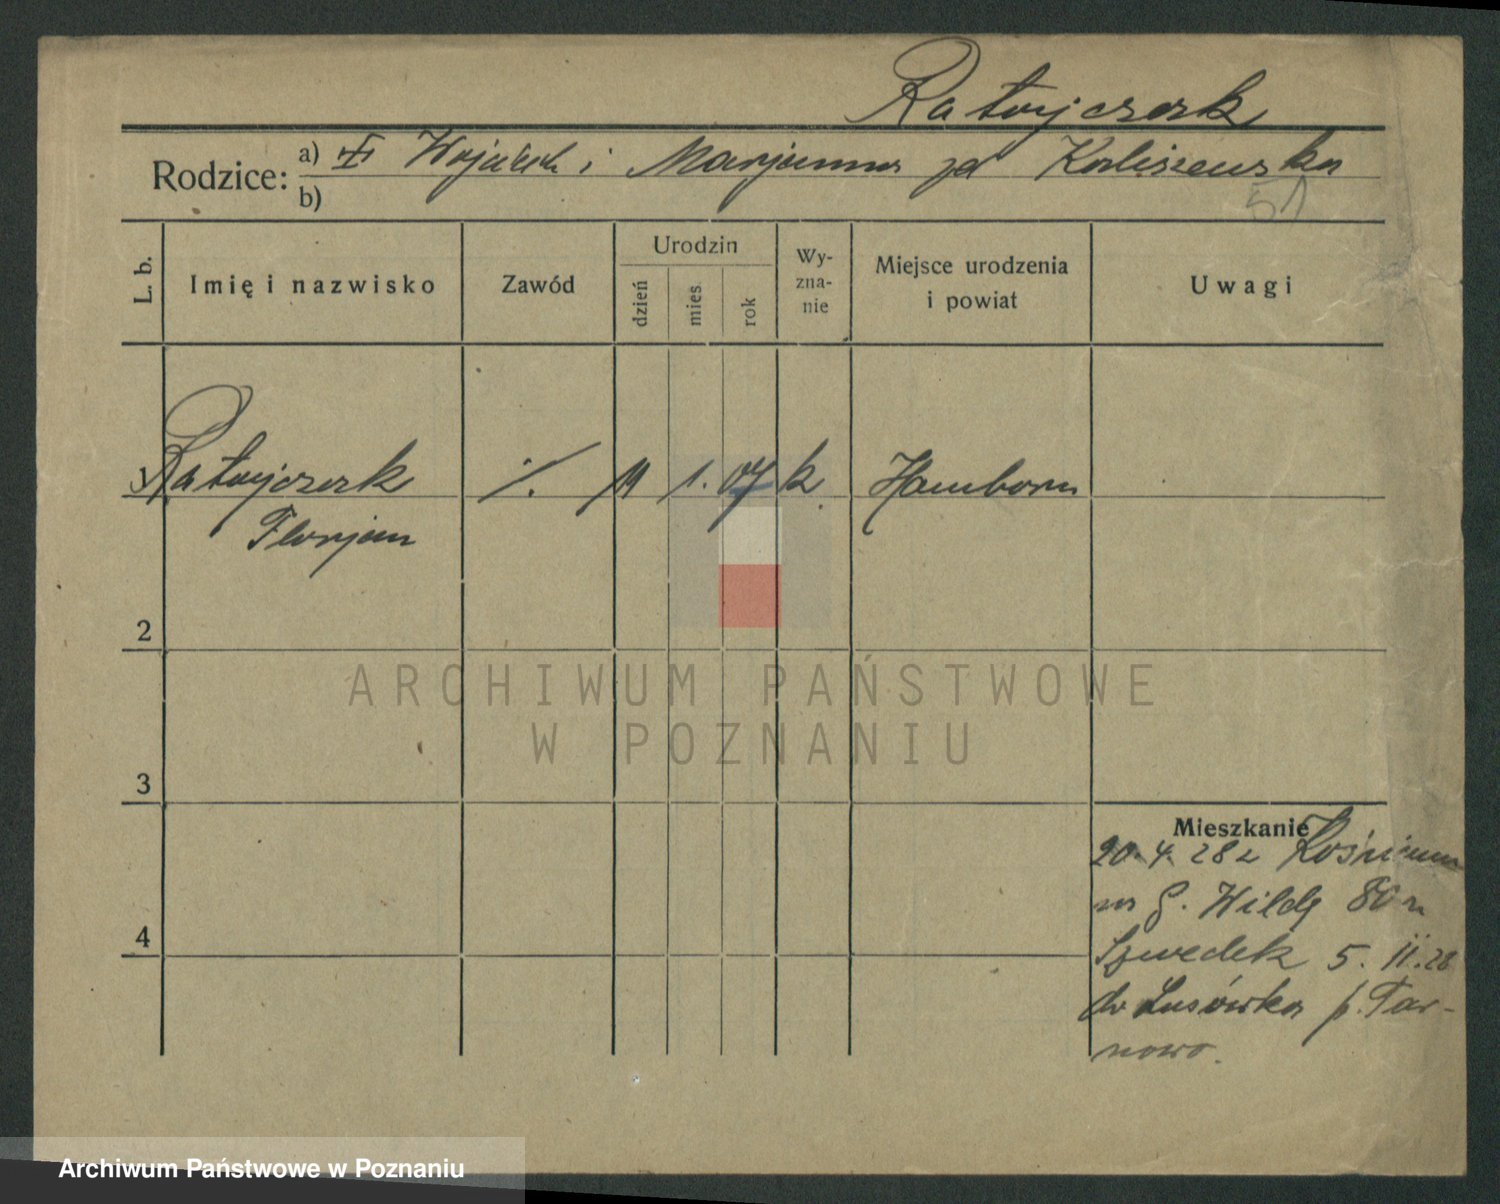 Ratajczak
Rodzice: a) Wojciech i Marjanna zd Kaliszewska
b)
51
L. b.
Imię i nazwisko
Zawód
Urodzin
dzień
mies.
rok
Wy-
zna-
nie
Miejsce urodzenia
i powiat
Uwagi
Ratajczak ./. 1. 07 k. Hamborn
Florjan
2
3
4
Mieszkanie
20. 4. 28 z
G. Wilda 80 u
Szwedek 5. 11. 28
do Lusówka p. Tar-
nowo.
ARCHIWUM PAŃSTWOWE
W POZNANIU
Archiwum Państwowe w Poznaniu